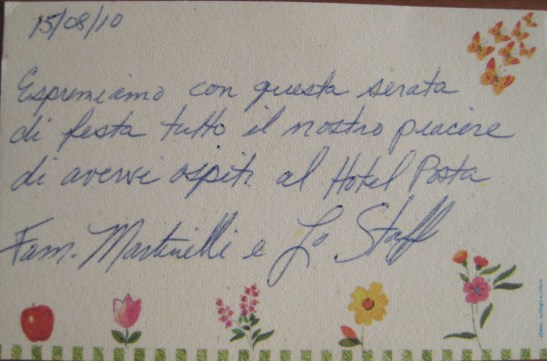 15/08/10
Esprimiamo con questa serata
di festa tutto il nostro piacere
di avervi ospiti al Hotel Posta
Fam. Martinelli e Lo Staff